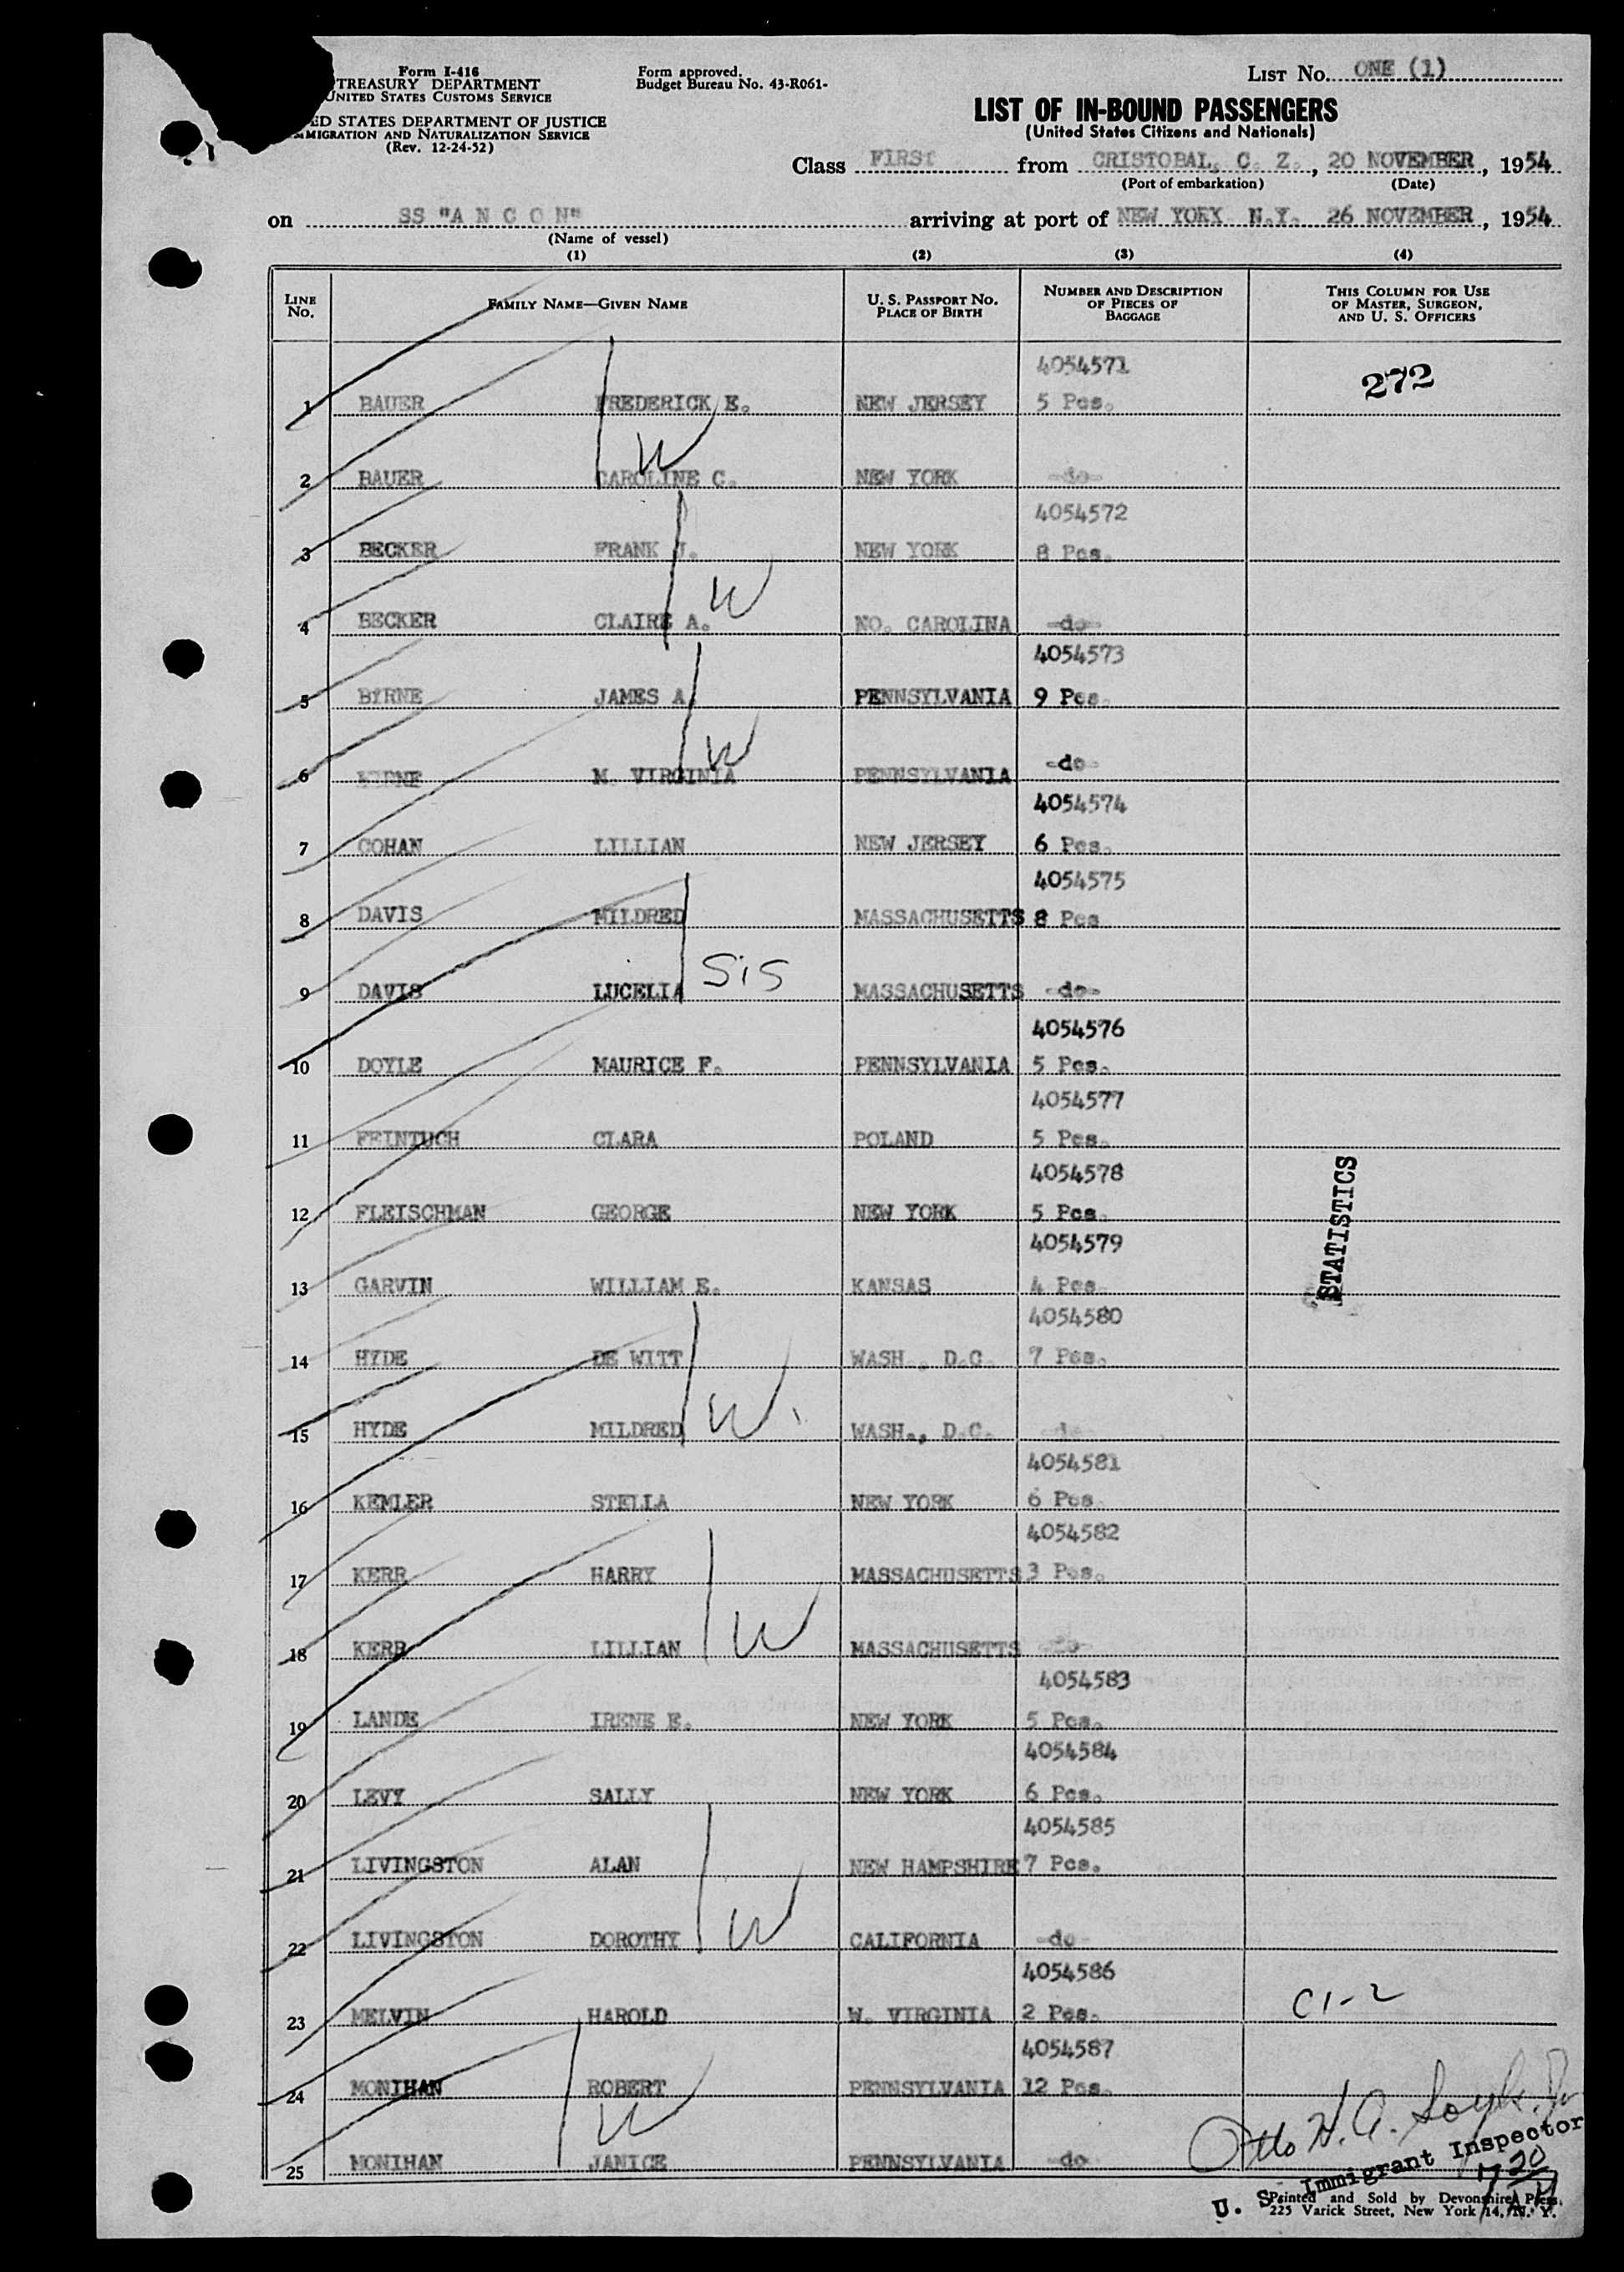 Form I-416
TREASURY DEPARTMENT
UNITED STATES CUSTOMS SERVICE
ED STATES DEPARTMENT OF JUSTICE
MMIGRATION AND NATURALIZATION SERVICE
(Rev. 12-24-52)
Form approved.
Budget Bureau No. 43-R061-
LIST No. ONE (1)
LIST OF IN-BOUND PASSENGERS
(United States Citizens and Nationals)
Class FIRST from CRISTOBAL, C. Z., 20 NOVEMBER, 1954
(Port of embarkation) (Date)
on SS "A N C O N" arriving at port of NEW YORK N.Y. 26 NOVEMBER, 1954
(Name of vessel)
(1) (2) (3) (4)
LINE No. FAMILY NAME—GIVEN NAME U. S. PASSPORT No. PLACE OF BIRTH NUMBER AND DESCRIPTION OF PIECES OF BAGGAGE THIS COLUMN FOR USE OF MASTER, SURGEON, AND U. S. OFFICERS
4054571 272
1 BAUER FREDERICK E. NEW JERSEY 5 Pcs.
W
2 BAUER CAROLINE C. NEW YORK -do-
4054572
3 BECKER FRANK J. NEW YORK 8 Pcs.
W
4 BECKER CLAIRE A. NO. CAROLINA -do-
4054573
5 BYRNE JAMES A. PENNSYLVANIA 9 Pcs.
W
6 M. VIRGINIA PENNSYLVANIA -do-
4054574
7 COHAN LILLIAN NEW JERSEY 6 Pcs.
4054575
8 DAVIS MILDRED MASSACHUSETTS 8 Pcs
Sis
9 DAVIS LUCELIA MASSACHUSETTS -do-
4054576
10 DOYLE MAURICE F. PENNSYLVANIA 5 Pcs.
4054577
11 FEINTUCH CLARA POLAND 5 Pcs.
4054578
12 FLEISCHMAN GEORGE NEW YORK 5 Pcs.
4054579
STATISTICS
13 GARVIN WILLIAM E. KANSAS 4 Pcs.
4054580
14 HYDE DE WITT WASH., D.C. 7 Pcs.
W.
15 HYDE MILDRED WASH., D.C. -do-
4054581
16 KEMLER STELLA NEW YORK 6 Pcs.
4054582
17 KERR HARRY MASSACHUSETTS 3 Pcs.
W
18 KERR LILLIAN MASSACHUSETTS -do-
4054583
19 LANDE IRENE E. NEW YORK 5 Pcs.
4054584
20 LEVY SALLY NEW YORK 6 Pcs.
4054585
21 LIVINGSTON ALAN NEW HAMPSHIRE 7 Pcs.
W
22 LIVINGSTON DOROTHY CALIFORNIA -do-
4054586
23 MELVIN HAROLD W. VIRGINIA 2 Pcs. C1-2
4054587
24 MONIHAN ROBERT PENNSYLVANIA 12 Pcs.
W
Otto H. A.
25 MONIHAN JANICE PENNSYLVANIA -do-
U. S. Immigrant Inspector
Printed and Sold by Devonshire Press,
225 Varick Street, New York 14, N. Y.